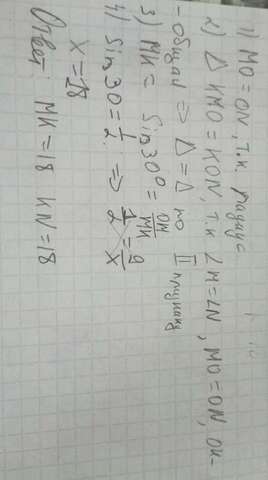 1) MO=ON, т.к. радиус
2) Δ KMO=KON, т.к ∠M=∠N, MO=ON, OK-
-общая ⇒ Δ=Δ по II признаку
3) MK= sin30°= OM/MK
4) sin30=1/2 ⇒ 1/2=9/x
x=18
Ответ: MK=18 KN=18